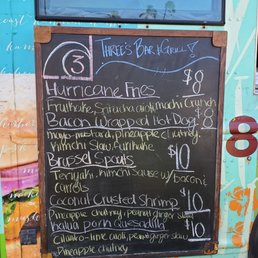 3
Three's Bar & Grill!
Hurricane Fries $8
Furikake, Sriracha aioli, mochi Crunch
Bacon Wrapped Hot Dog! $8
mayo-mustard, pineapple chutney,
Kimchi Slaw, furikake
Brussel Sprouts $10
Teriyaki, kimchi sauce w/ bacon &
Carrots
Coconut Crusted Shrimp $10
Pineapple chutney, peanut ginger slaw
Kalua Pork Quesadilla $10
Cilantro-lime aioli, peanut ginger slaw
Pineapple chutney
8